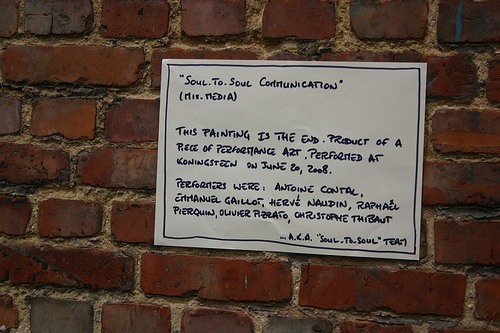 "SOUL.TO.SOUL COMMUNICATION"
(MIX.MEDIA)
THIS PAINTING IS THE END.PRODUCT OF A
PIECE OF PERFORMANCE ART, PERFORMED AT
KONINGSTEEN ON JUNE 20, 2008.
PERFORMERS WERE: ANTOINE CONTAL,
EMMANUEL GAILLOT, HERVÉ NAUDIN, RAPHAËL
PIERQUIN, OLIVIER PIZZATO, CHRISTOPHE THIBAUT
... A.K.A. "SOUL.TO.SOUL" TEAM